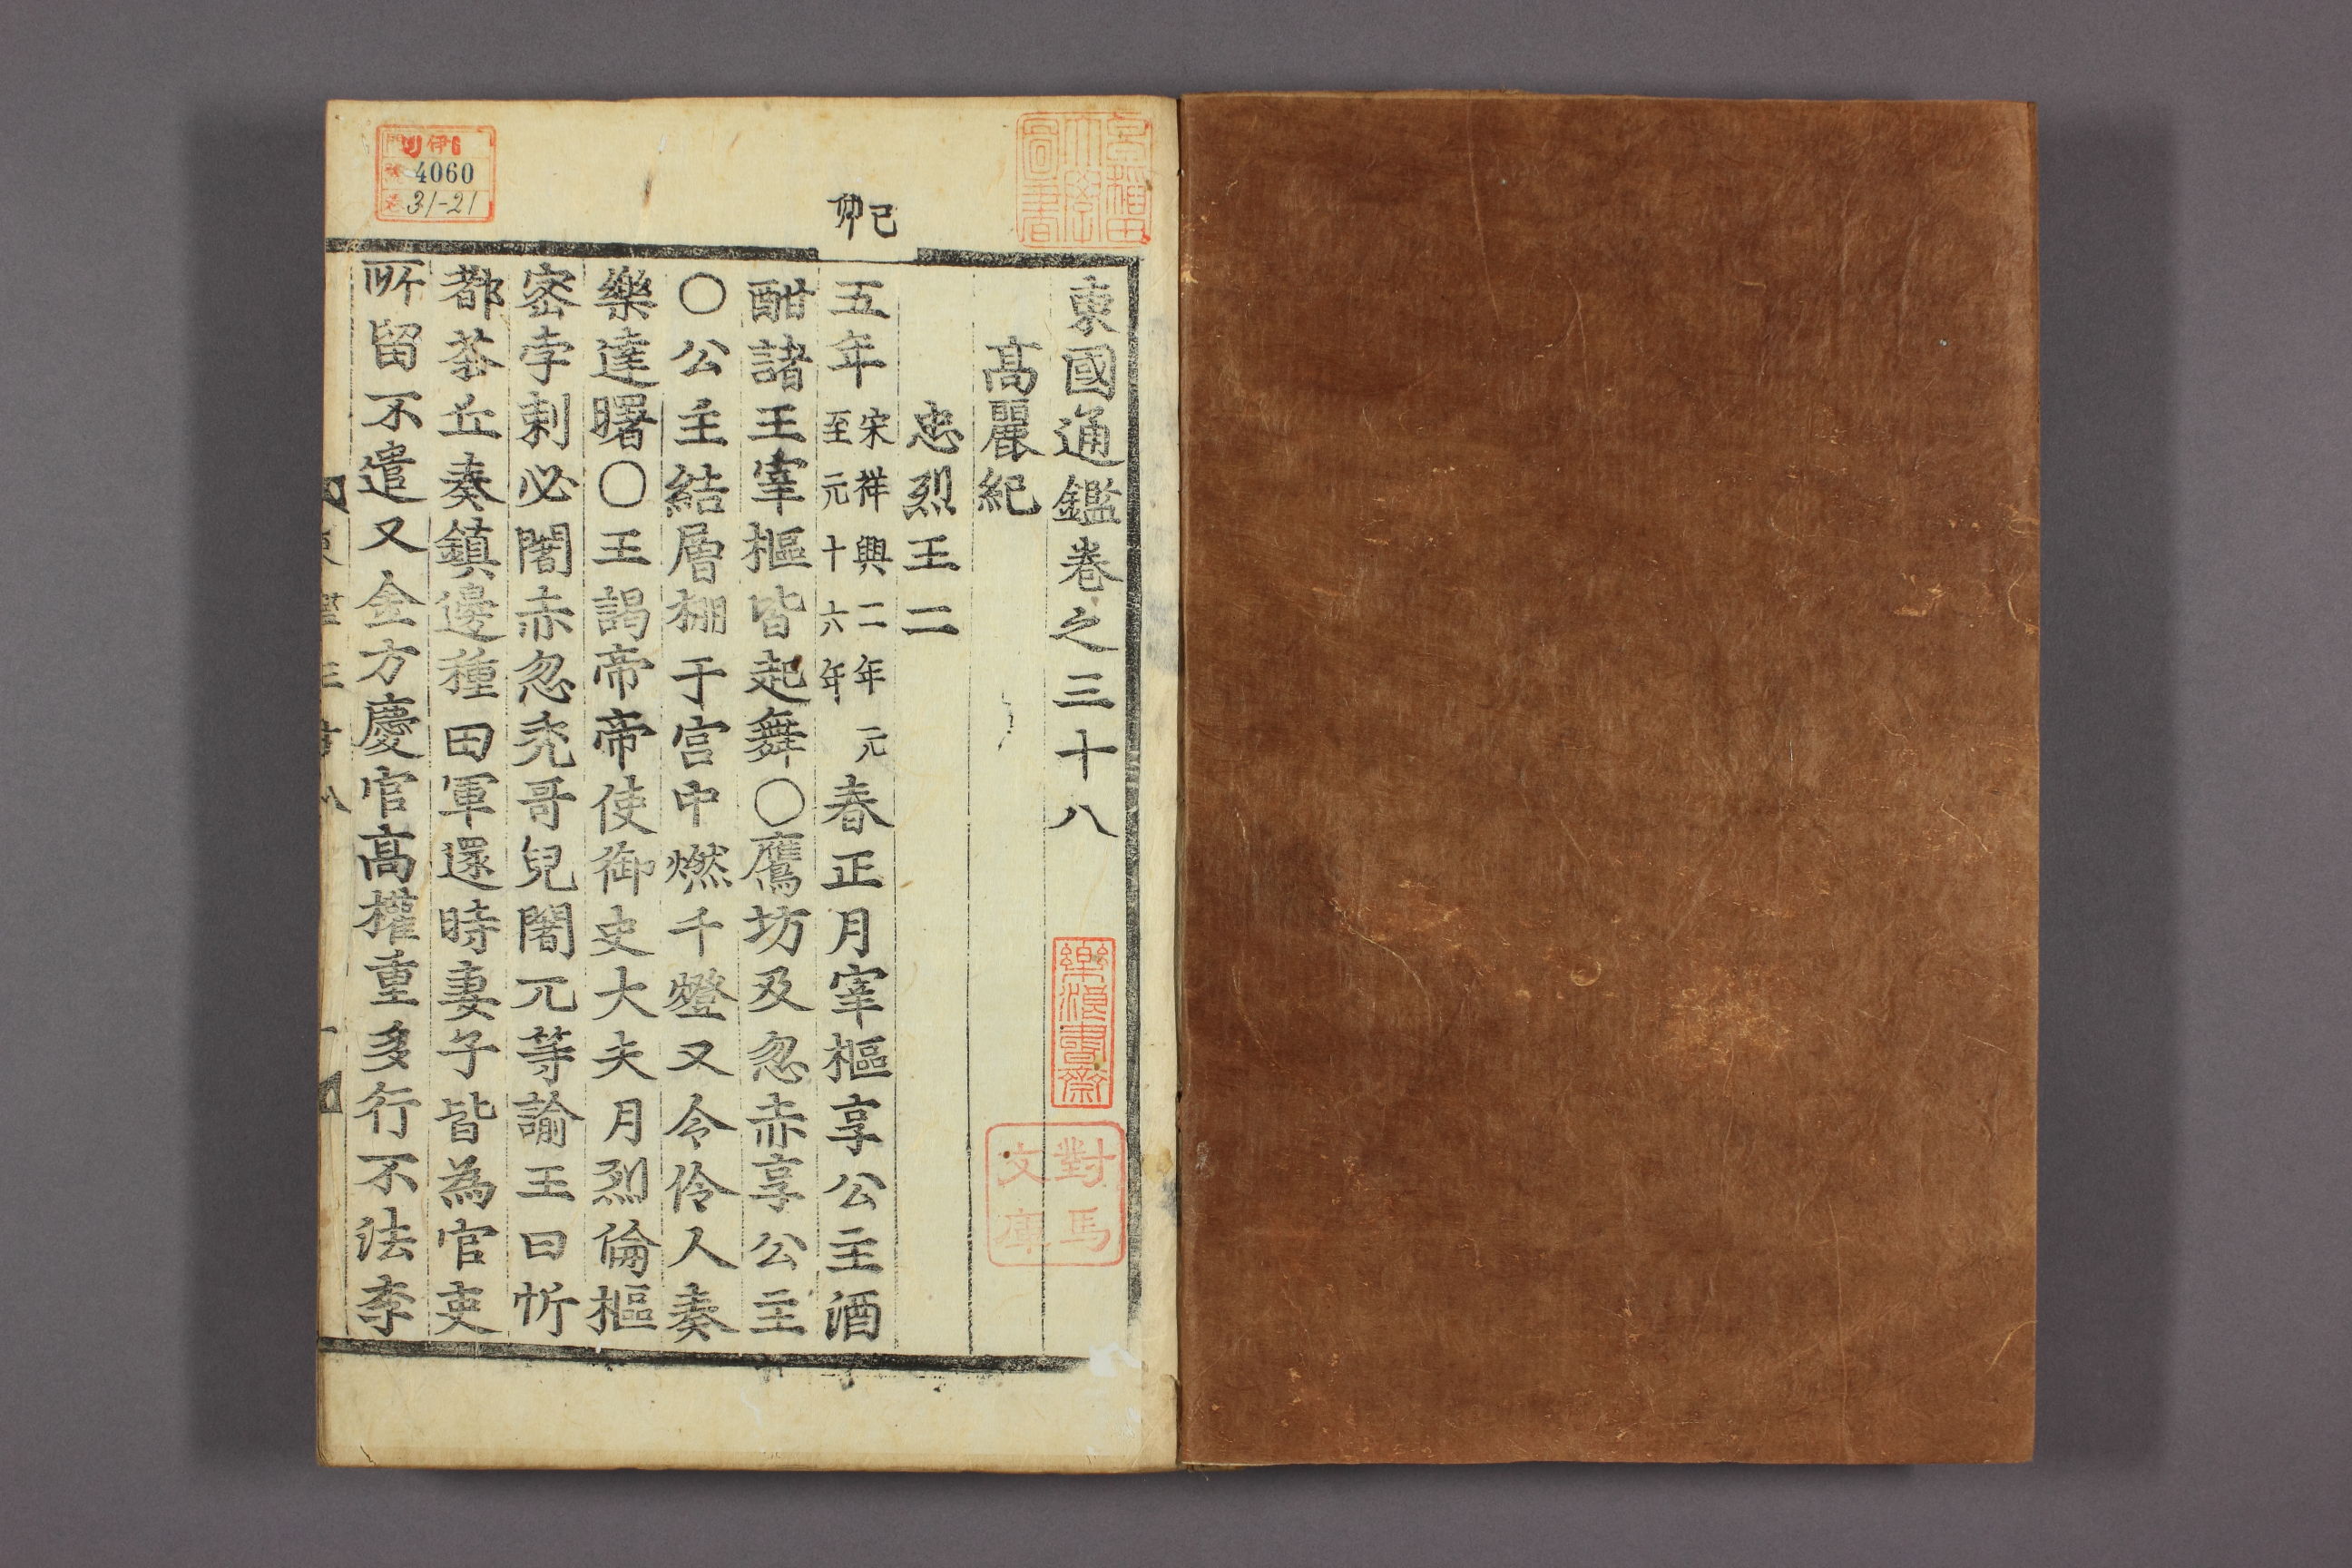 東國通鑑卷之三十八
高麗紀
忠烈王二
己卯
五年宋祥興二年元至元十六年春正月宰樞享公主酒
酣諸王宰樞皆起舞〇鷹坊及忽赤享公主
〇公主結層棚于宫中燃千燈又令伶人奏
樂達曙〇王謁帝帝使御史大夫月烈倫樞
密孛剌必闍赤忽禿哥兒闍兀等諭王曰忻
都茶丘奏鎮邊種田軍還時妻子皆為官吏
所留不遣又金方慶官高權重多行不法李
伊
4060
31-21
早稲田大學圖書
樂浪書齋
對馬文庫